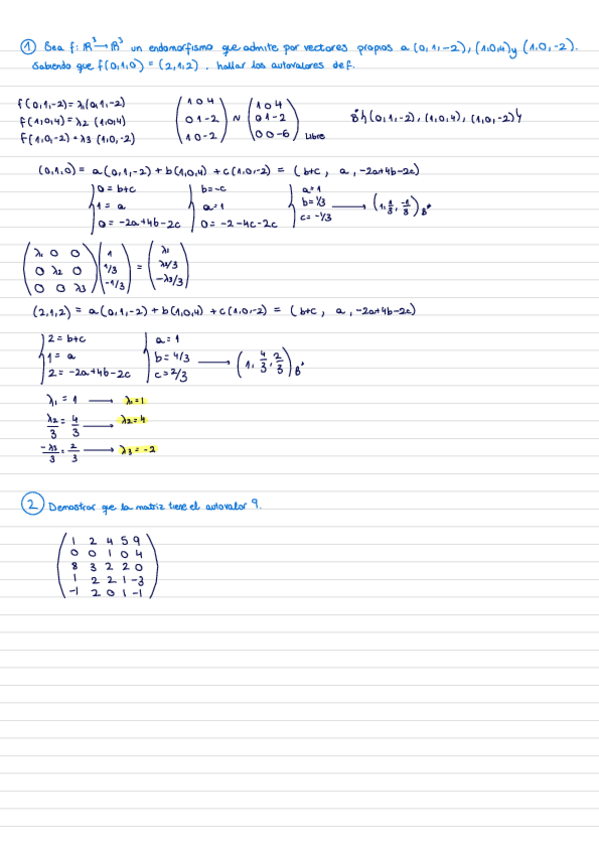 ① Sea f: ℝ³ → ℝ³ un endomorfismo que admite por vectores propios a (0,1,-2), (1,0,4) y (1,0,-2).
Sabiendo que f(0,1,0) = (2,1,2). hallar los autovalores de f.
f(0,1,-2) = λ1(0,1,-2)
f(1,0,4) = λ2 (1,0,4)
f(1,0,-2) = λ3 (1,0,-2)
(1 0 4 / 0 1 -2 / 1 0 -2) ~ (1 0 4 / 0 1 -2 / 0 0 -6) Libre
B*{(0,1,-2), (1,0,4), (1,0,-2)}
(0,1,0) = a(0,1,-2) + b(1,0,4) + c(1,0,-2) = (b+c, a, -2a+4b-2c)
{0 = b+c {b=-c {a=1
{1 = a {a=1 {b=1/3 → (1, 1/3, -1/3)B*
{0 = -2a+4b-2c {0 = -2-4c-2c {c=-1/3
(λ1 0 0 / 0 λ2 0 / 0 0 λ3) (1 / 1/3 / -1/3) = (λ1 / λ2/3 / -λ3/3)
(2,1,2) = a(0,1,-2) + b(1,0,4) + c(1,0,-2) = (b+c, a, -2a+4b-2c)
{2 = b+c {a=1
{1 = a {b=4/3 → (1, 4/3, 2/3)B*
{2 = -2a+4b-2c {c=2/3
λ1 = 1 → λ1=1
λ2/3 = 4/3 → λ2=4
-λ3/3 = 2/3 → λ3=-2
② Demostrar que la matriz tiene el autovalor 9.
1 2 4 5 9
0 0 1 0 4
8 3 2 2 0
1 2 2 1 -3
-1 2 0 1 -1